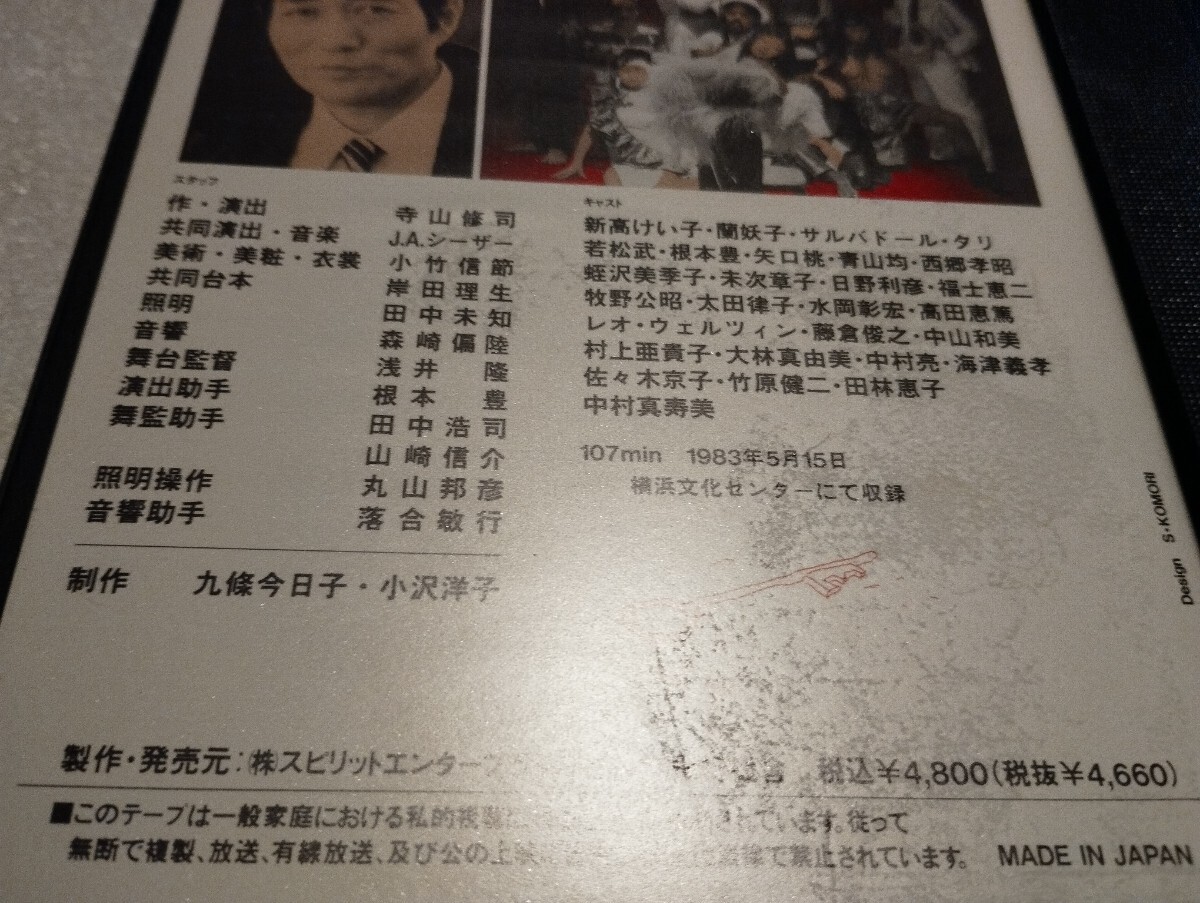 スタッフ
作・演出 寺山修司
共同演出・音楽 J.A.シーザー
美術・美粧・衣裳 小竹信節
共同台本 岸田理生
照明 田中未知
音響 森崎偏陸
舞台監督 浅井隆
演出助手 根本豊
舞監助手 田中浩司
山崎信介
照明操作 丸山邦彦
音響助手 落合敏行
制作 九條今日子・小沢洋子
キャスト
新高けい子・蘭妖子・サルバドール・タリ
若松武・根本豊・矢口桃・青山均・西郷孝昭
蛭沢美季子・末次章子・日野利彦・福士恵二
牧野公昭・太田律子・水岡彰宏・高田恵篤
レオ・ウェルツィン・藤倉俊之・中山和美
村上亜貴子・大林真由美・中村亮・海津義孝
佐々木京子・竹原健二・田林恵子
中村真寿美
107min 1983年5月15日
横浜文化センターにて収録
Design S・KOMORI
製作・発売元:(株)スピリットエンター
税込¥4,800(税抜¥4,660)
■このテープは一般家庭における私的複製 されています。従って
無断で複製、放送、有線放送、及び公の上映 で禁止されています。 MADE IN JAPAN